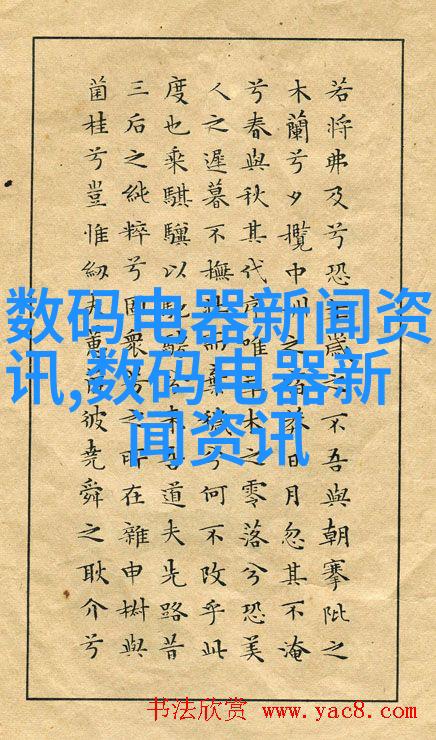 若將弗及兮恐歲之不吾與朝搴阰之
木蘭兮夕攬中之莽日月忽其不淹
兮春與秋其代序唯木之零落兮恐美
人之遲暮不撫而棄穢兮何不改乎此
度也乘騏驥以馳來吾道夫先路昔
三后之純粹兮固衆之所在雜申椒與
菌桂兮豈惟紉夫蕙彼堯舜之耿介兮
数码电器新闻资
讯,数码电器新
闻资讯
书法欣赏 www.yac8.com